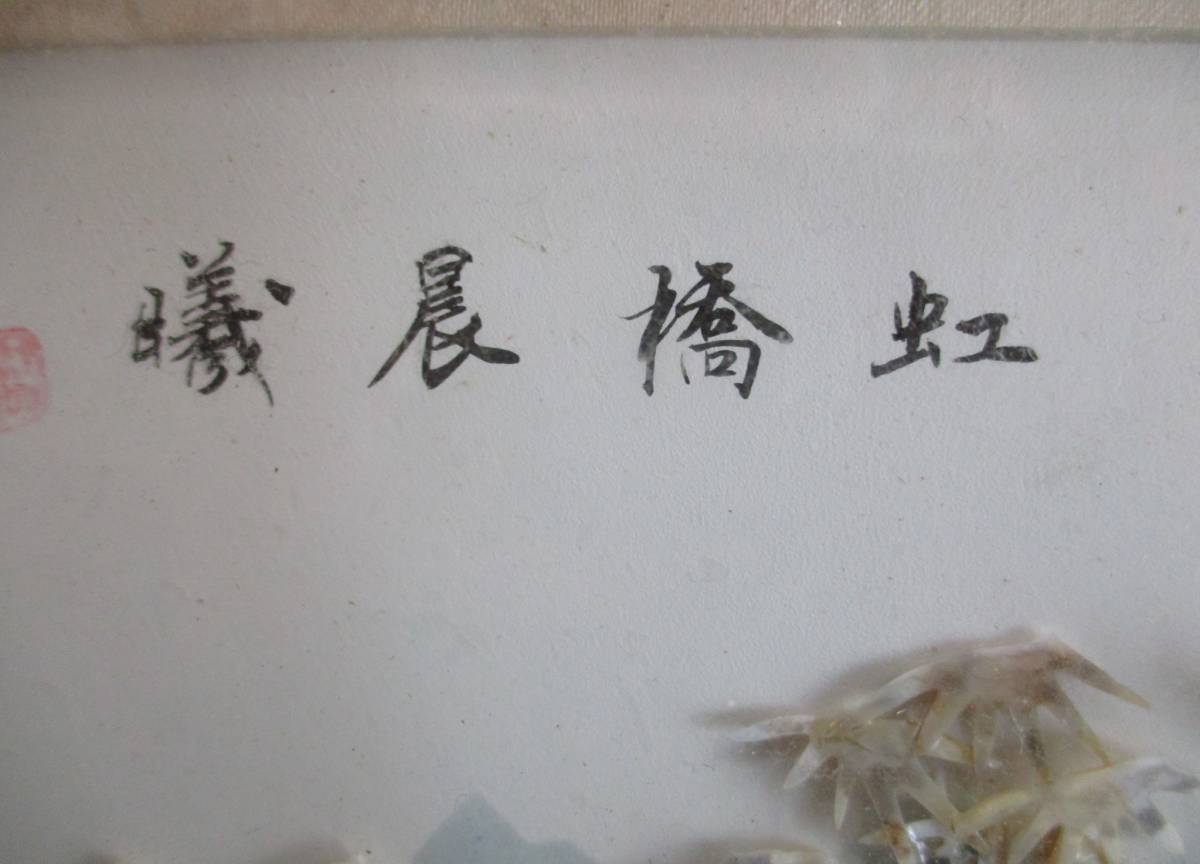 虹橋晨曦